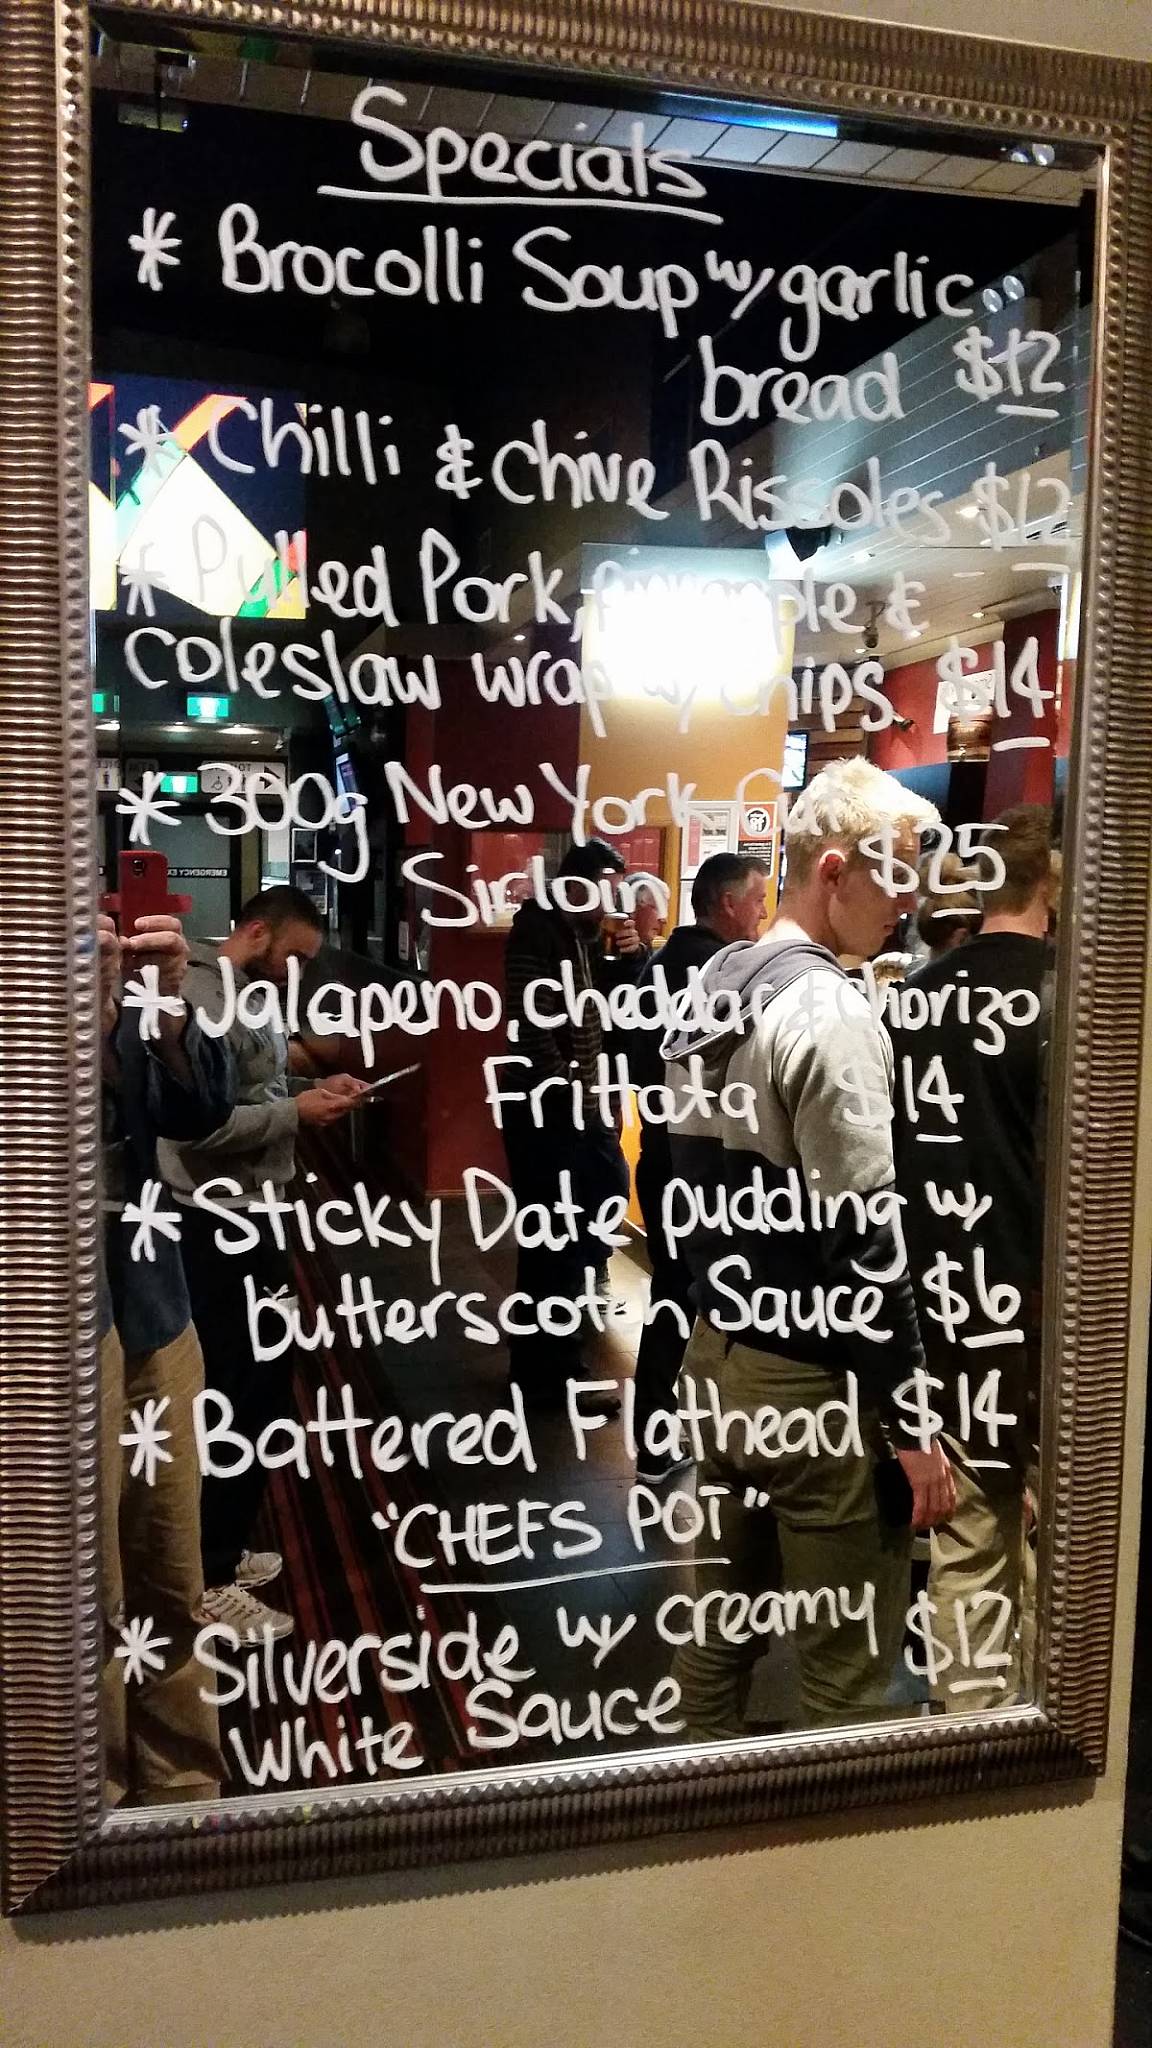 Specials
* Brocolli Soup w/ garlic
bread $12
* Chilli & Chive Rissoles $12
* Pulled Pork, pineapple &
coleslaw wrap w/ chips $14
* 300g New York Cut
Sirloin $25
* Jalapeno, cheddar & chorizo
Frittata $14
* Sticky Date pudding w/
butterscotch Sauce $6
* Battered Flathead $14
"CHEFS POT"
* Silverside w/ creamy $12
White Sauce